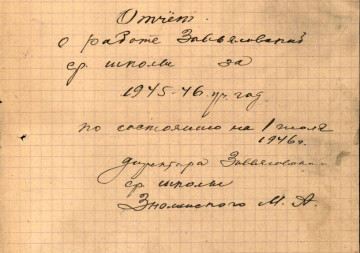 Отчёт
о работе Завьяловской
ср. школы за
1945-46 уч. год
по состоянию на 1 июля
1946 г.
директора Завьяловск.
ср. школы
М. А.